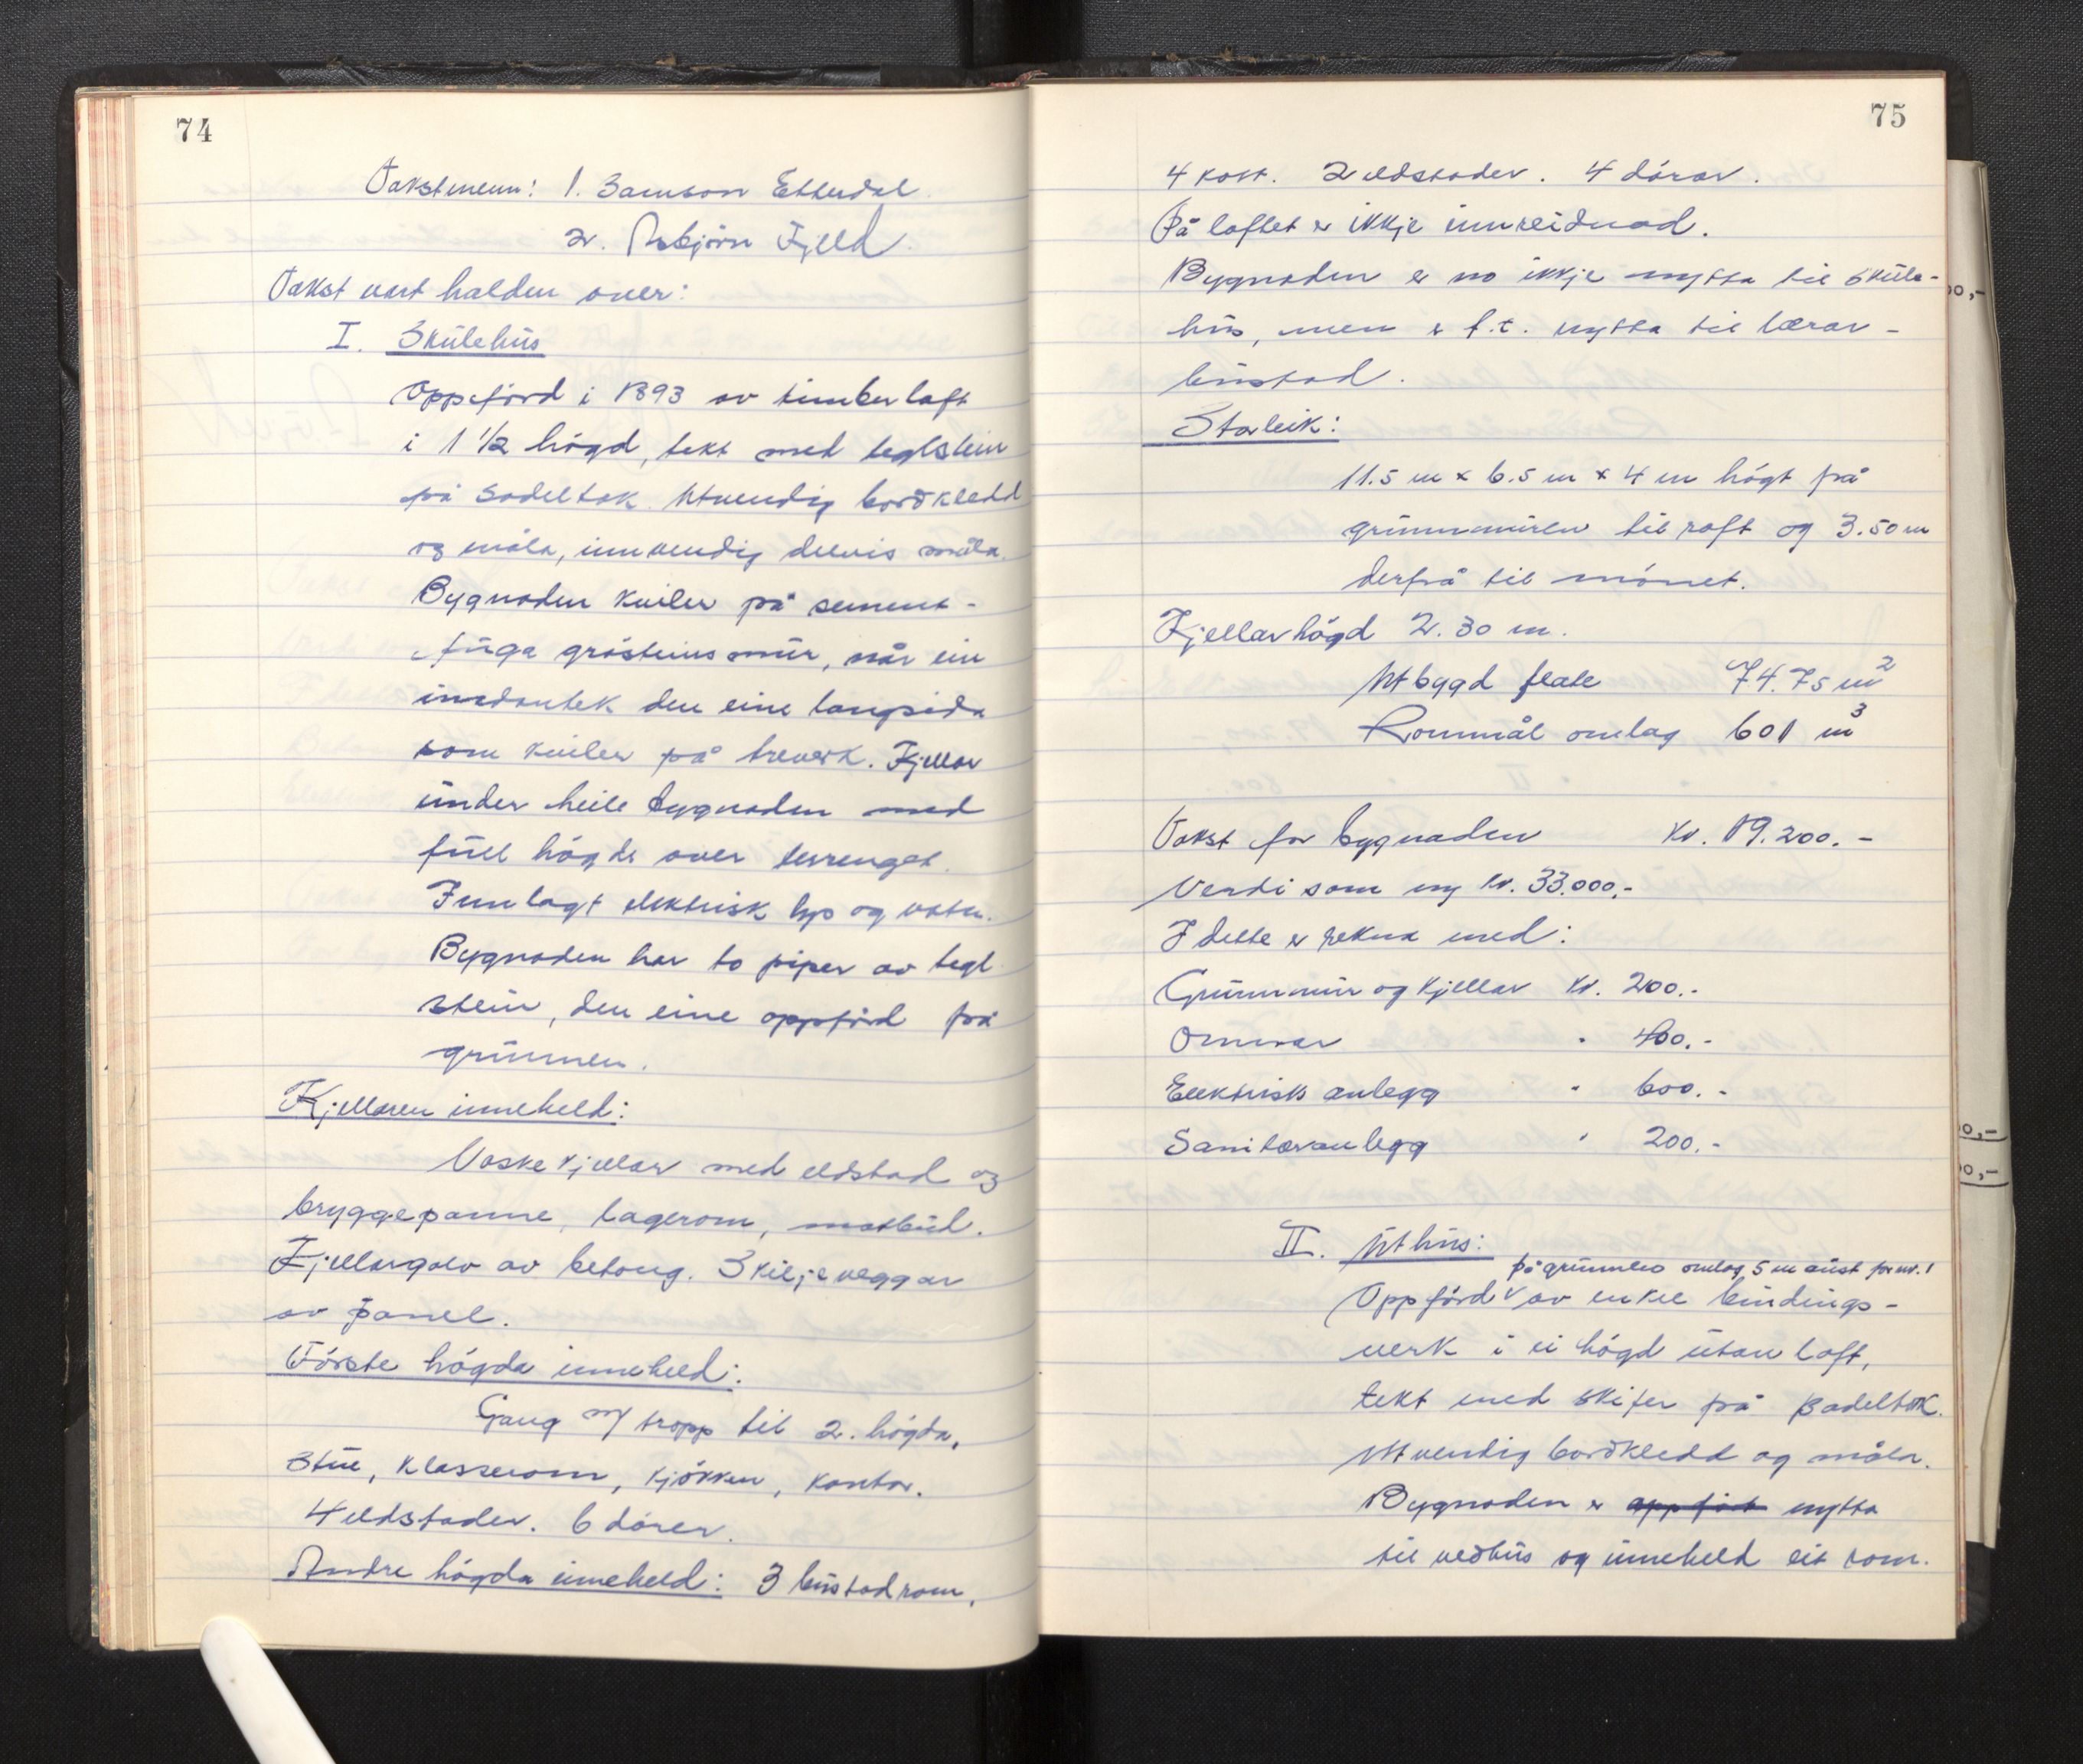 74
Takstmenn: 1. Samson Etterdal
2. Asbjörn Fjeld.
Takst vart halden over:
I. Skülehüs
Oppförd i 1893 av timberlaft
i 1 1/2 högd, tekt med teglstein
på sadeltak. Utvendig bordkledd
og måla, innvendig delvis måla.
Bygnaden kviler på sement-
füga gråsteinsmür, når ein
undantek den eine langsida
som kviler på treverk. Kjellar
ünder heile bygnaden med
füll högde over terrenget.
Innlagt elektrisk lys og vatn.
Bygnaden har to piper av tegl
stein, den eine oppförd frå
grünnen.
Kjellaren inneheld:
Vaskekjellar med eldstad og
bryggepanne, lagerom, matbüd.
Kjellargolv av betong. Skiljeveggar
av panel.
Förste högda inneheld:
Gang m/ tropp til 2. högda,
Stüe, klasserom, kjökken, kontor.
4 eldstader. 6 dörer.
Andre högda inneheld: 3 büstadrom,
75
4 kott. 2 eldstader. 4 dörar.
På loftet er ikkje innreidnad.
Bygnaden er no ikkje nytta til sküle-
hüs, men er f.t. nytta til lærar-
büstad.
Storleik:
11.5 m x 6.5 m x 4 m högt frå
grünnmüren til raft og 3.50 m
derfrå til mönet.
Kjellarhögd 2.30 m.
Utbygd flate 74.75 m2
Rommål omlag 601 m3
Takst for bygnaden kr. 19.200.-
Verdi som ny kr. 33.000.-
I dette er rekna med:
Grünnmür og kjellar kr. 200.-
Omnar " 400.-
Elektrisk anlegg " 600.-
Sanitæranlegg " 200.-
II. Uthüs:
på grünnleo omlag 5 m aüst for nr. 1
Oppförd v av enkel bindings-
verk i ei högd ütan loft,
tekt med skifer på sadeltak.
Utvendig bordkledd og måla.
Bygnaden er oppført nytta
til vedhüs og inneheld eit rom.
00,-
00,-
00,-